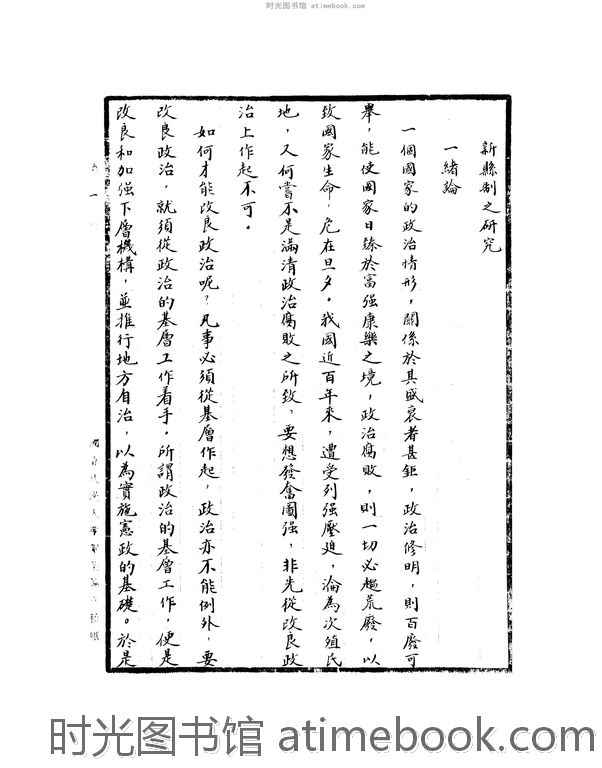 时光图书馆 atimebook.com
新縣制之研究
一緒論
一個國家的政治情形，關係於其盛衰者甚鉅，政治修明，則百廢可
舉，能使國家日臻於富强康樂之境，政治腐敗，則一切必趨荒廢，以
致國家生命，危在旦夕。我國近百年來，遭受列强壓迫，淪為次殖民
地，又何嘗不是滿清政治腐敗之所致，要想發奮圖强，非先從改良政
治上作起不可。
如何才能改良政治呢？凡事必須從基層作起，政治亦不能例外，要
改良政治，就須從政治的基層工作着手。所謂政治的基層工作，便是
改良和加强下層機構，並推行地方自治，以為實施憲政的基礎。於是
时光图书馆 atimebook.com